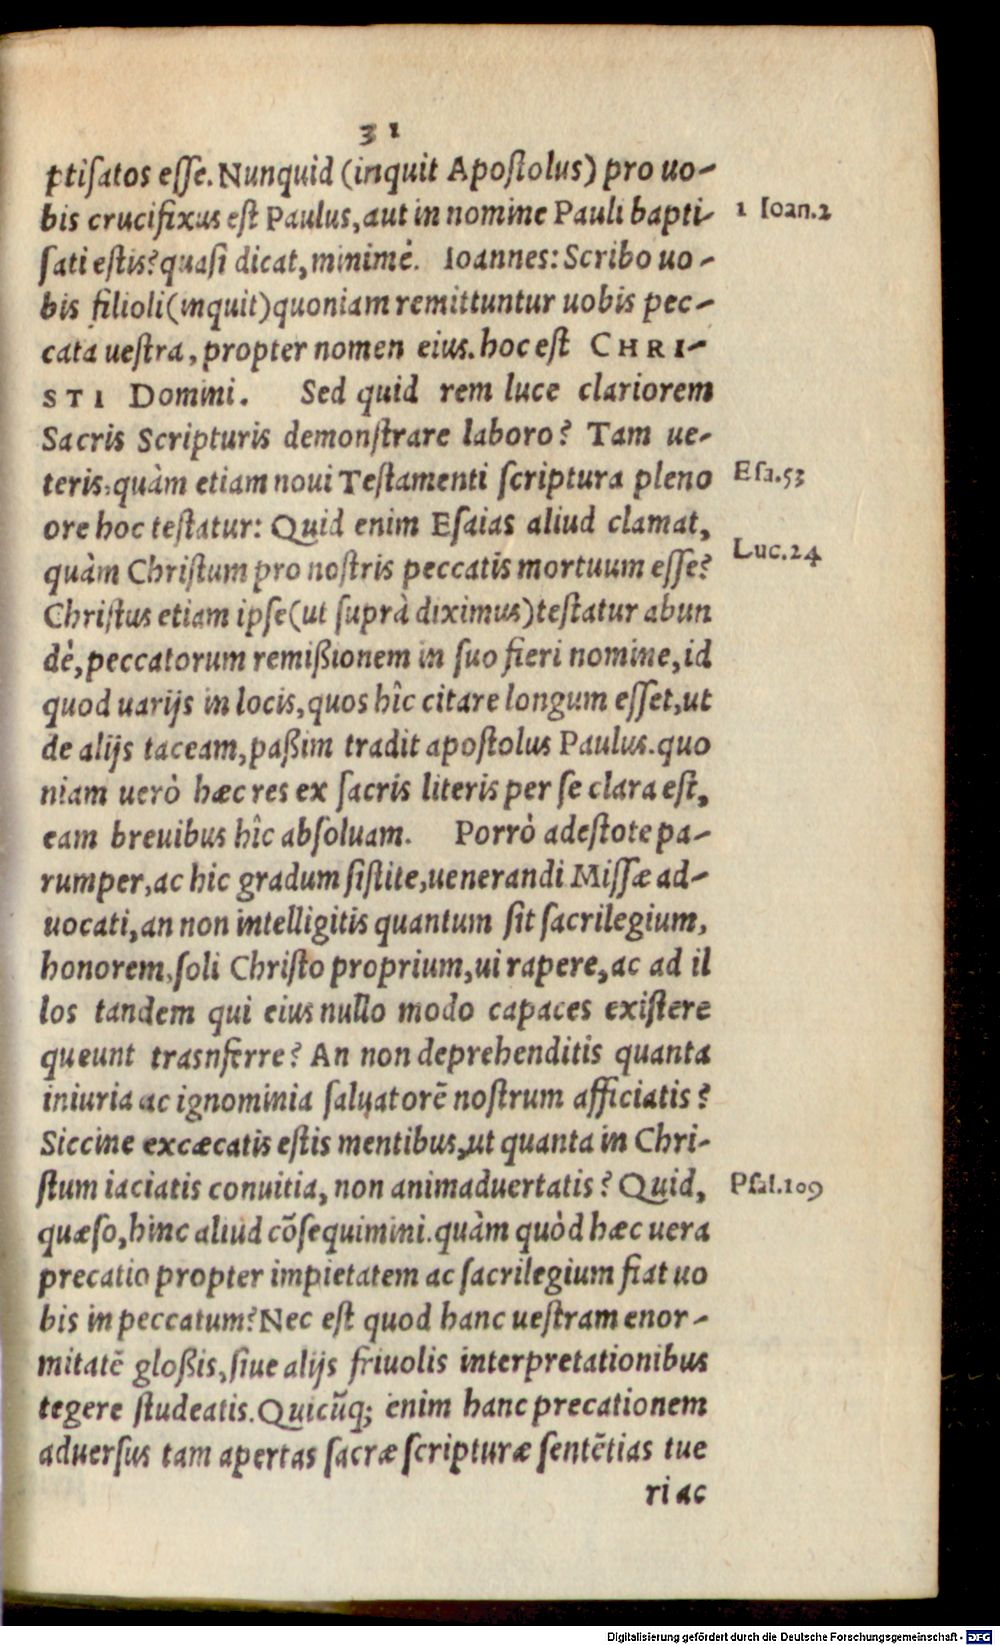 31
ptiſatos eſſe. Nunquid (inquit Apoſtolus) pro uo-
bis crucifixus eſt Paulus, aut in nomine Pauli bapti-
1 Ioan.2
ſati eſtis? quaſi dicat, minimè. Ioannes: Scribo uo-
bis filioli (inquit) quoniam remittuntur uobis pec-
cata ueſtra, propter nomen eius. hoc eſt CHRI-
STI Domini. Sed quid rem luce clariorem
Sacris Scripturis demonſtrare laboro? Tam ue-
teris, quàm etiam noui Teſtamenti ſcriptura pleno
Eſa.53
ore hoc teſtatur: Quid enim Eſaias aliud clamat,
quàm Chriſtum pro noſtris peccatis mortuum eſſe?
Luc.24
Chriſtus etiam ipſe (ut ſuprà diximus) teſtatur abun
dè, peccatorum remißionem in ſuo fieri nomine, id
quod uarijs in locis, quos hîc citare longum eſſet, ut
de alijs taceam, paßim tradit apoſtolus Paulus. quo
niam uerò hæc res ex ſacris literis per ſe clara eſt,
eam breuibus hîc abſoluam. Porrò adeſtote pa-
rumper, ac hic gradum ſiſtite, uenerandi Miſſæ ad-
uocati, an non intelligitis quantum ſit ſacrilegium,
honorem, ſoli Chriſto proprium, ui rapere, ac ad il
los tandem qui eius nullo modo capaces exiſtere
queunt trasnferre? An non deprehenditis quanta
iniuria ac ignominia ſaluatorē noſtrum afficiatis?
Siccine excæcatis eſtis mentibus, ut quanta in Chri-
ſtum iaciatis conuitia, non animaduertatis? Quid,
Pſal.109
quæſo, hinc aliud cõſequimini. quàm quòd hæc uera
precatio propter impietatem ac ſacrilegium fiat uo
bis in peccatum? Nec eſt quod hanc ueſtram enor-
mitatē gloßis, ſiue alijs friuolis interpretationibus
tegere ſtudeatis. Quicũq; enim hanc precationem
aduerſus tam apertas ſacræ ſcripturæ ſentētias tue
ri ac
Digitalisierung gefördert durch die Deutsche Forschungsgemeinschaft - DFG